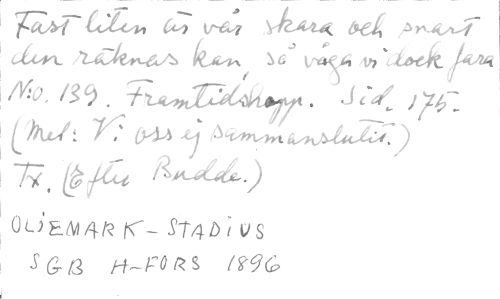 Fast liten är vår skara och snart
den räknas kan, så våga vi dock fara
N:o. 139. Framtidshopp. Sid. 175.
(Mel: Vi oss ej sammanslutit.)
Tx. (Efter Budde.)
OLIEMARK - STADIUS
SGB H-FORS 1896